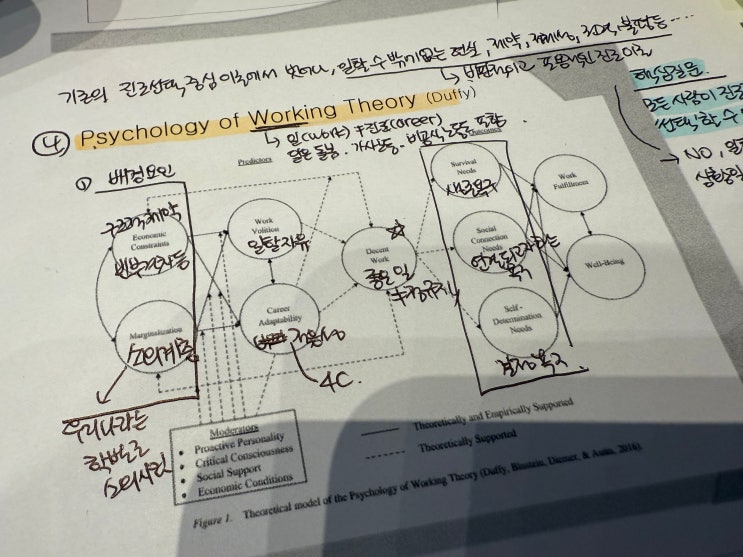 기존의 진로선택 중심 이론에서 벗어나, 일할 수 밖에 없는 현실, 제약,
↳ 비판적이고 포용적인 진로이론
④ Psychology of Working Theory (Duffy)
↳ 일(work) ≠ 진로(career)
가사노동 · 비공식 노동 포함
핵심질문.
모든 사람이 진로
→ NO,
① 배경요인
Predictors
Outcomes
구조적제약
Economic
Constraints
Marginalization
소외계층
우리나라는
학벌로
Work
Volition
일할자유
Career
Adaptability
적응성
4C
Decent
Work
☆
좋은 일
≠ 정규직
Survival
Needs
생존욕구
Social
Connection
Needs
욕구
Self -
Determination
Needs
결정욕구
Work
Fulfillment
Well-Being
Moderators
• Proactive Personality
• Critical Consciousness
• Social Support
• Economic Conditions
Theoretically and Empirically Supported
Theoretically Supported
Figure 1. Theoretical model of the Psychology of Working Theory (Duffy, Blustein, Diemer, & Autin, 2016).